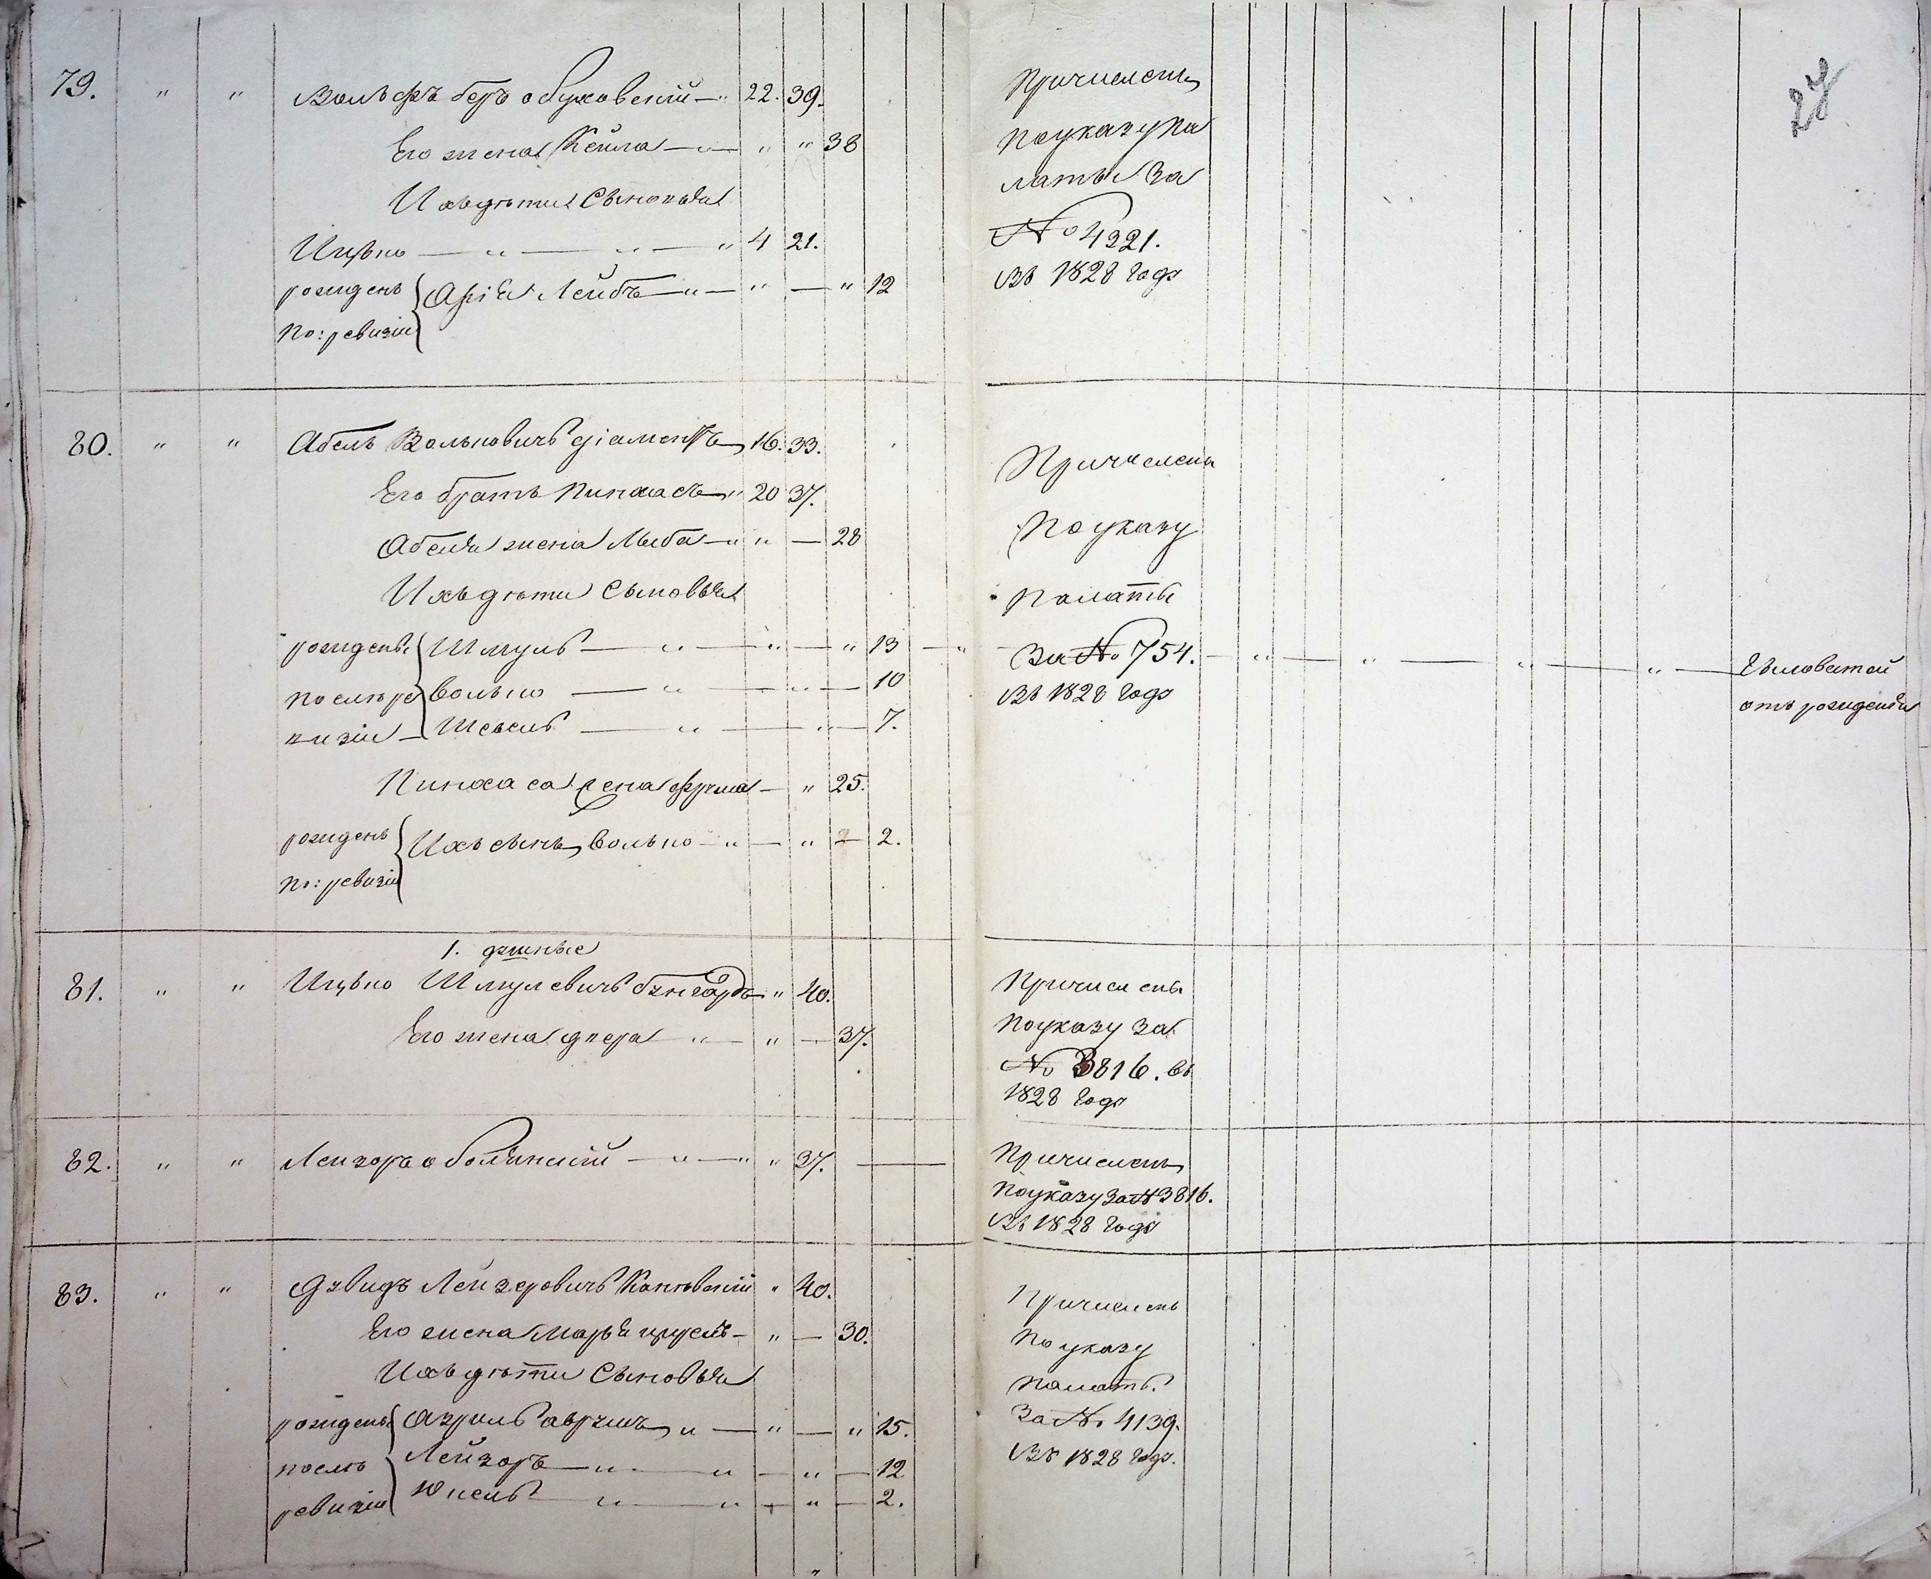 27
79. " " Вольфъ беръ обуховскій — " 22. 39.
Его жена Кейла — " — " " 38
Ихъ дѣти Сыновья
Ицько — " — " — " 4 21.
рожденъ Арія Лейбъ — " — " — " 12
по: ревизіи
Причисленъ
по указу Па
латы За
№ 4321.
Въ 1828 Годѣ
80. " " Абель Вольковичъ діаментъ 16. 33.
Его братъ Пинхасъ — " 20 37.
Абеля жена Люба — " " — 28
Ихъ дѣти Сыновья
рожденъ Шмуль — " — " — " 13 — "
после ре Волько — " — " — 10
визіи — Шевель — " — " — 7.
Пинхаса жена фрума — " 25.
рожденъ Ихъ сынъ Волько — " — " 2 2.
по: ревизіи
Причислены
По указу
Палаты
За № 754. — " — " — " — " —
Въ 1828 Годѣ
Гѣловатой
отъ рожденія
81. " " Ицько Шмулевичъ бунгардъ " 40.
Его жена двера " — " — 37.
Причислены
По указу за
№ 3816. въ
1828 Годѣ
82. " " Лейзоръ оболинскій — " — " " 37. —
Причисленъ
По указу за № 3816.
Въ 1828 Годѣ
83. " " Давидъ Лейзеровичъ Каневскій " 40.
Его жена Марья — " — 30.
Ихъ дѣти Сыновья
рожденъ Азриль аврумъ " — " — " 15.
после Лейзоръ — " — " — " — 12
ревизіи Юкель — " — " — " — 2.
Причисленъ
По указу
Палаты
За № 4139.
Въ 1828 Годѣ.